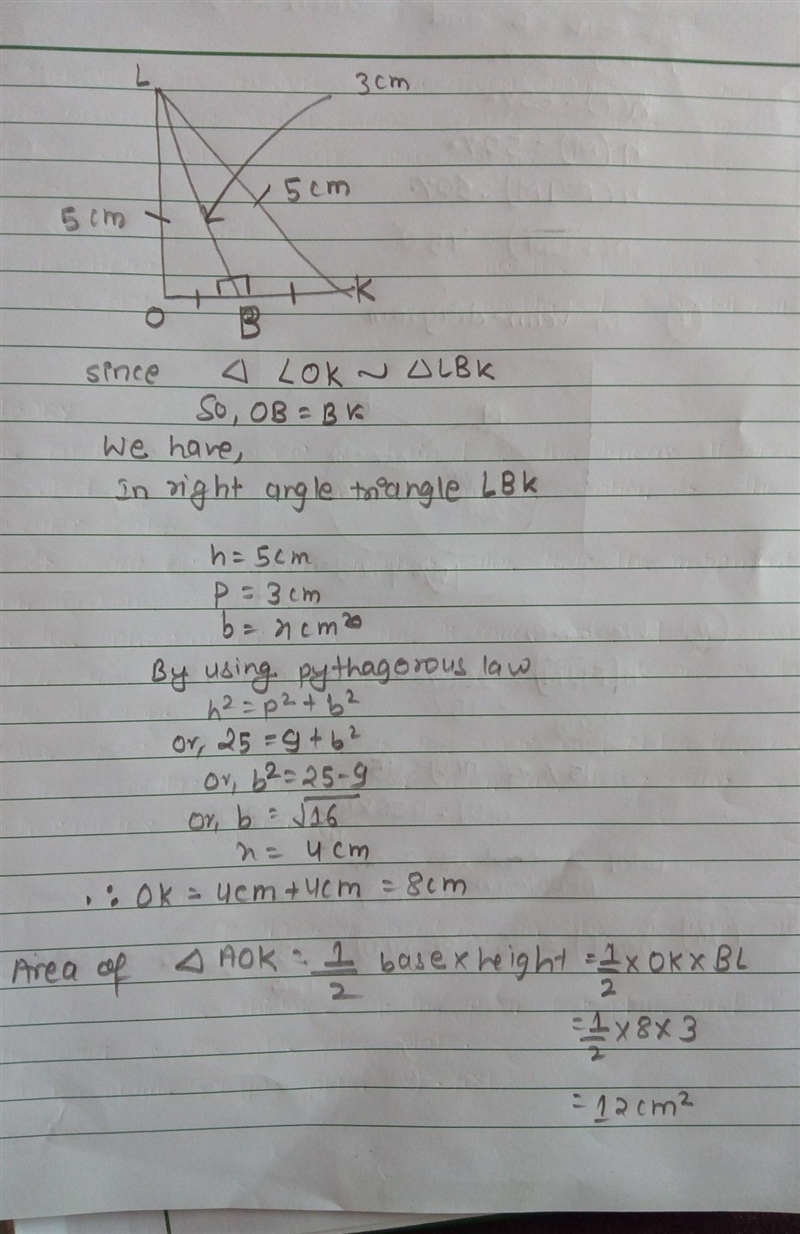 L
3cm
5cm
5cm
O
B
K
since △ LOK ~ △LBK
So, OB = BK
We have,
In right angle triangle LBK
h = 5cm
P = 3cm
b = x cm
By using pythagorous law
h² = p² + b²
or, 25 = 9 + b²
or, b² = 25 - 9
or, b = √16
x = 4cm
∴ OK = 4cm + 4cm = 8cm
Area of △ AOK = 1/2 base × height = 1/2 × OK × BL
= 1/2 × 8 × 3
= 12 cm²